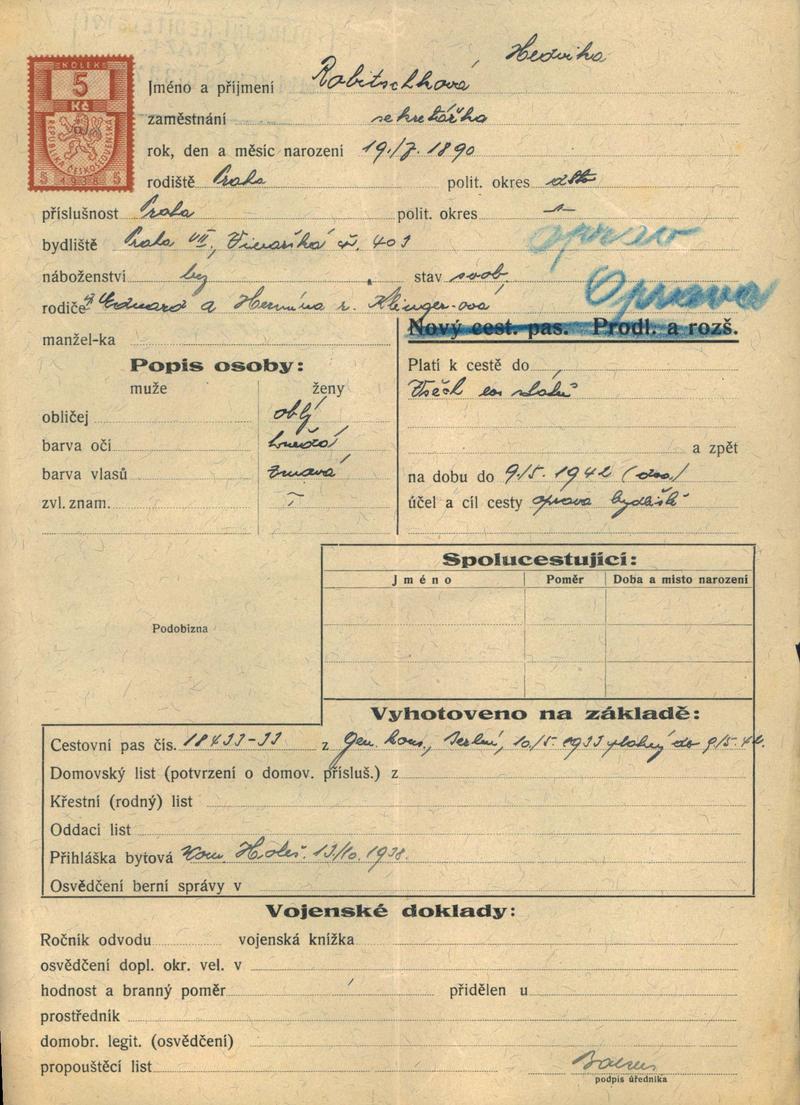 KOLEK
5
Kč
REPUBLIKA ČESKOSLOVENSKÁ
5 1938 5
Hedvika
Jméno a příjmení Robitschková
zaměstnání sekretářka
rok, den a měsíc narození 19./7. 1890
rodiště Praha polit. okres dtto
příslušnost Praha polit. okres
bydliště Praha VII, č. 403
oprav
náboženství bez stav svob.
Oprava
rodiče Eduard a Hermína r. Klinger-ová
Nový cest. pas. Prodl. a rozš.
manžel-ka
Popis osoby:
muže ženy
obličej oblý
barva očí hnědá
barva vlasů tmavá
zvl. znam.
Platí k cestě do
Všech ev. států
a zpět
na dobu do 9./5. 1942
účel a cíl cesty oprava bydliště
Spolucestující:
Jméno Poměr Doba a místo narození
Podobizna
Vyhotoveno na základě:
Cestovní pas čís. 18433-33 z Gen. kons., Berlín, 10/5. 1933 platný do 9/5. 42.
Domovský list (potvrzení o domov. přísluš.) z
Křestní (rodný) list
Oddací list
Přihláška bytová Kom. Holeš. 13/10. 1938.
Osvědčení berní správy v
Vojenské doklady:
Ročník odvodu vojenská knížka
osvědčení dopl. okr. vel. v
hodnost a branný poměr přidělen u
prostředník
domobr. legit. (osvědčení)
propouštěcí list
podpis úředníka